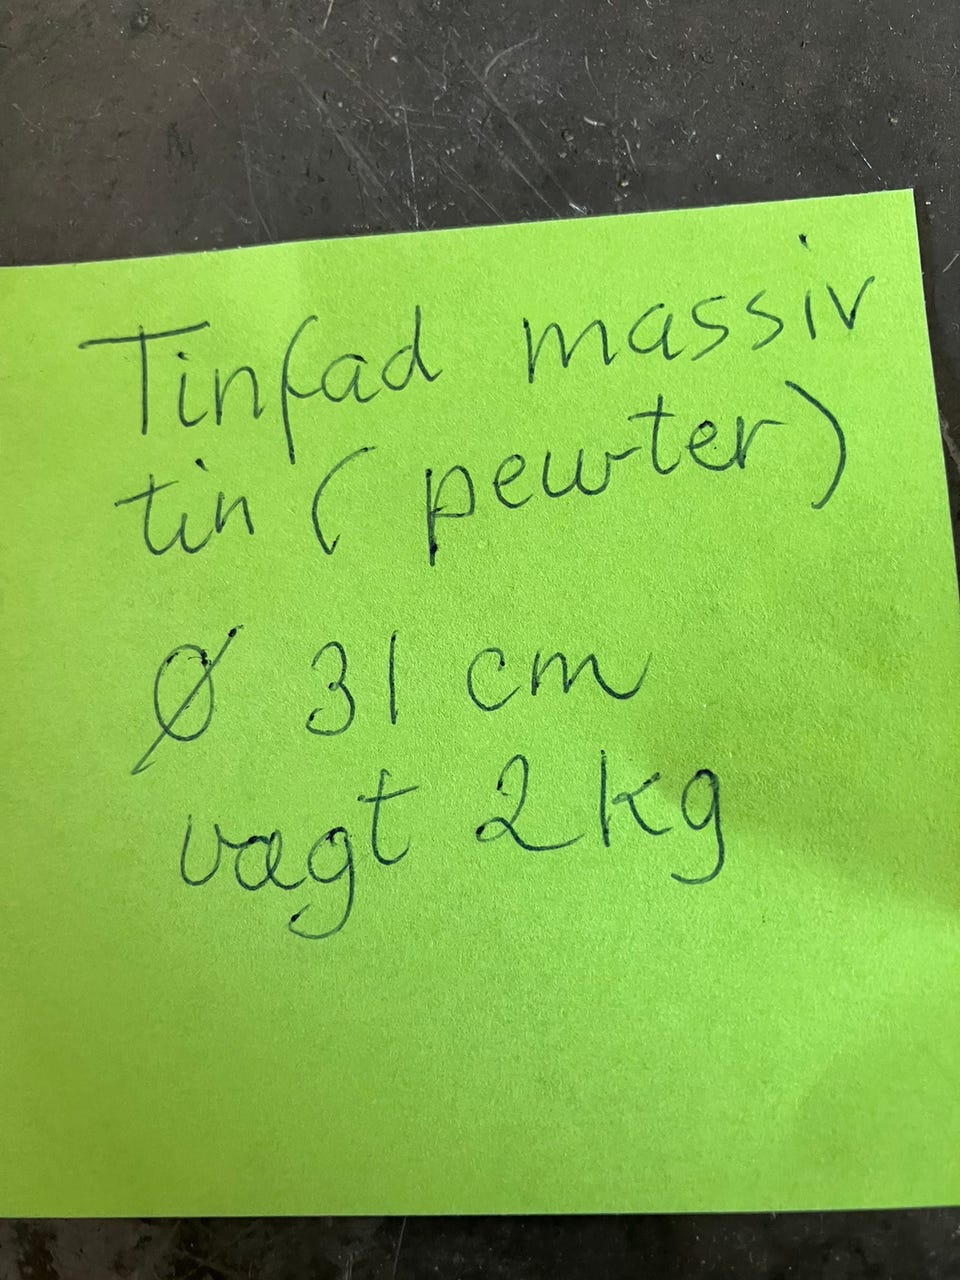 Tinfad massiv
tin (pewter)
Ø 31 cm
vægt 2 kg